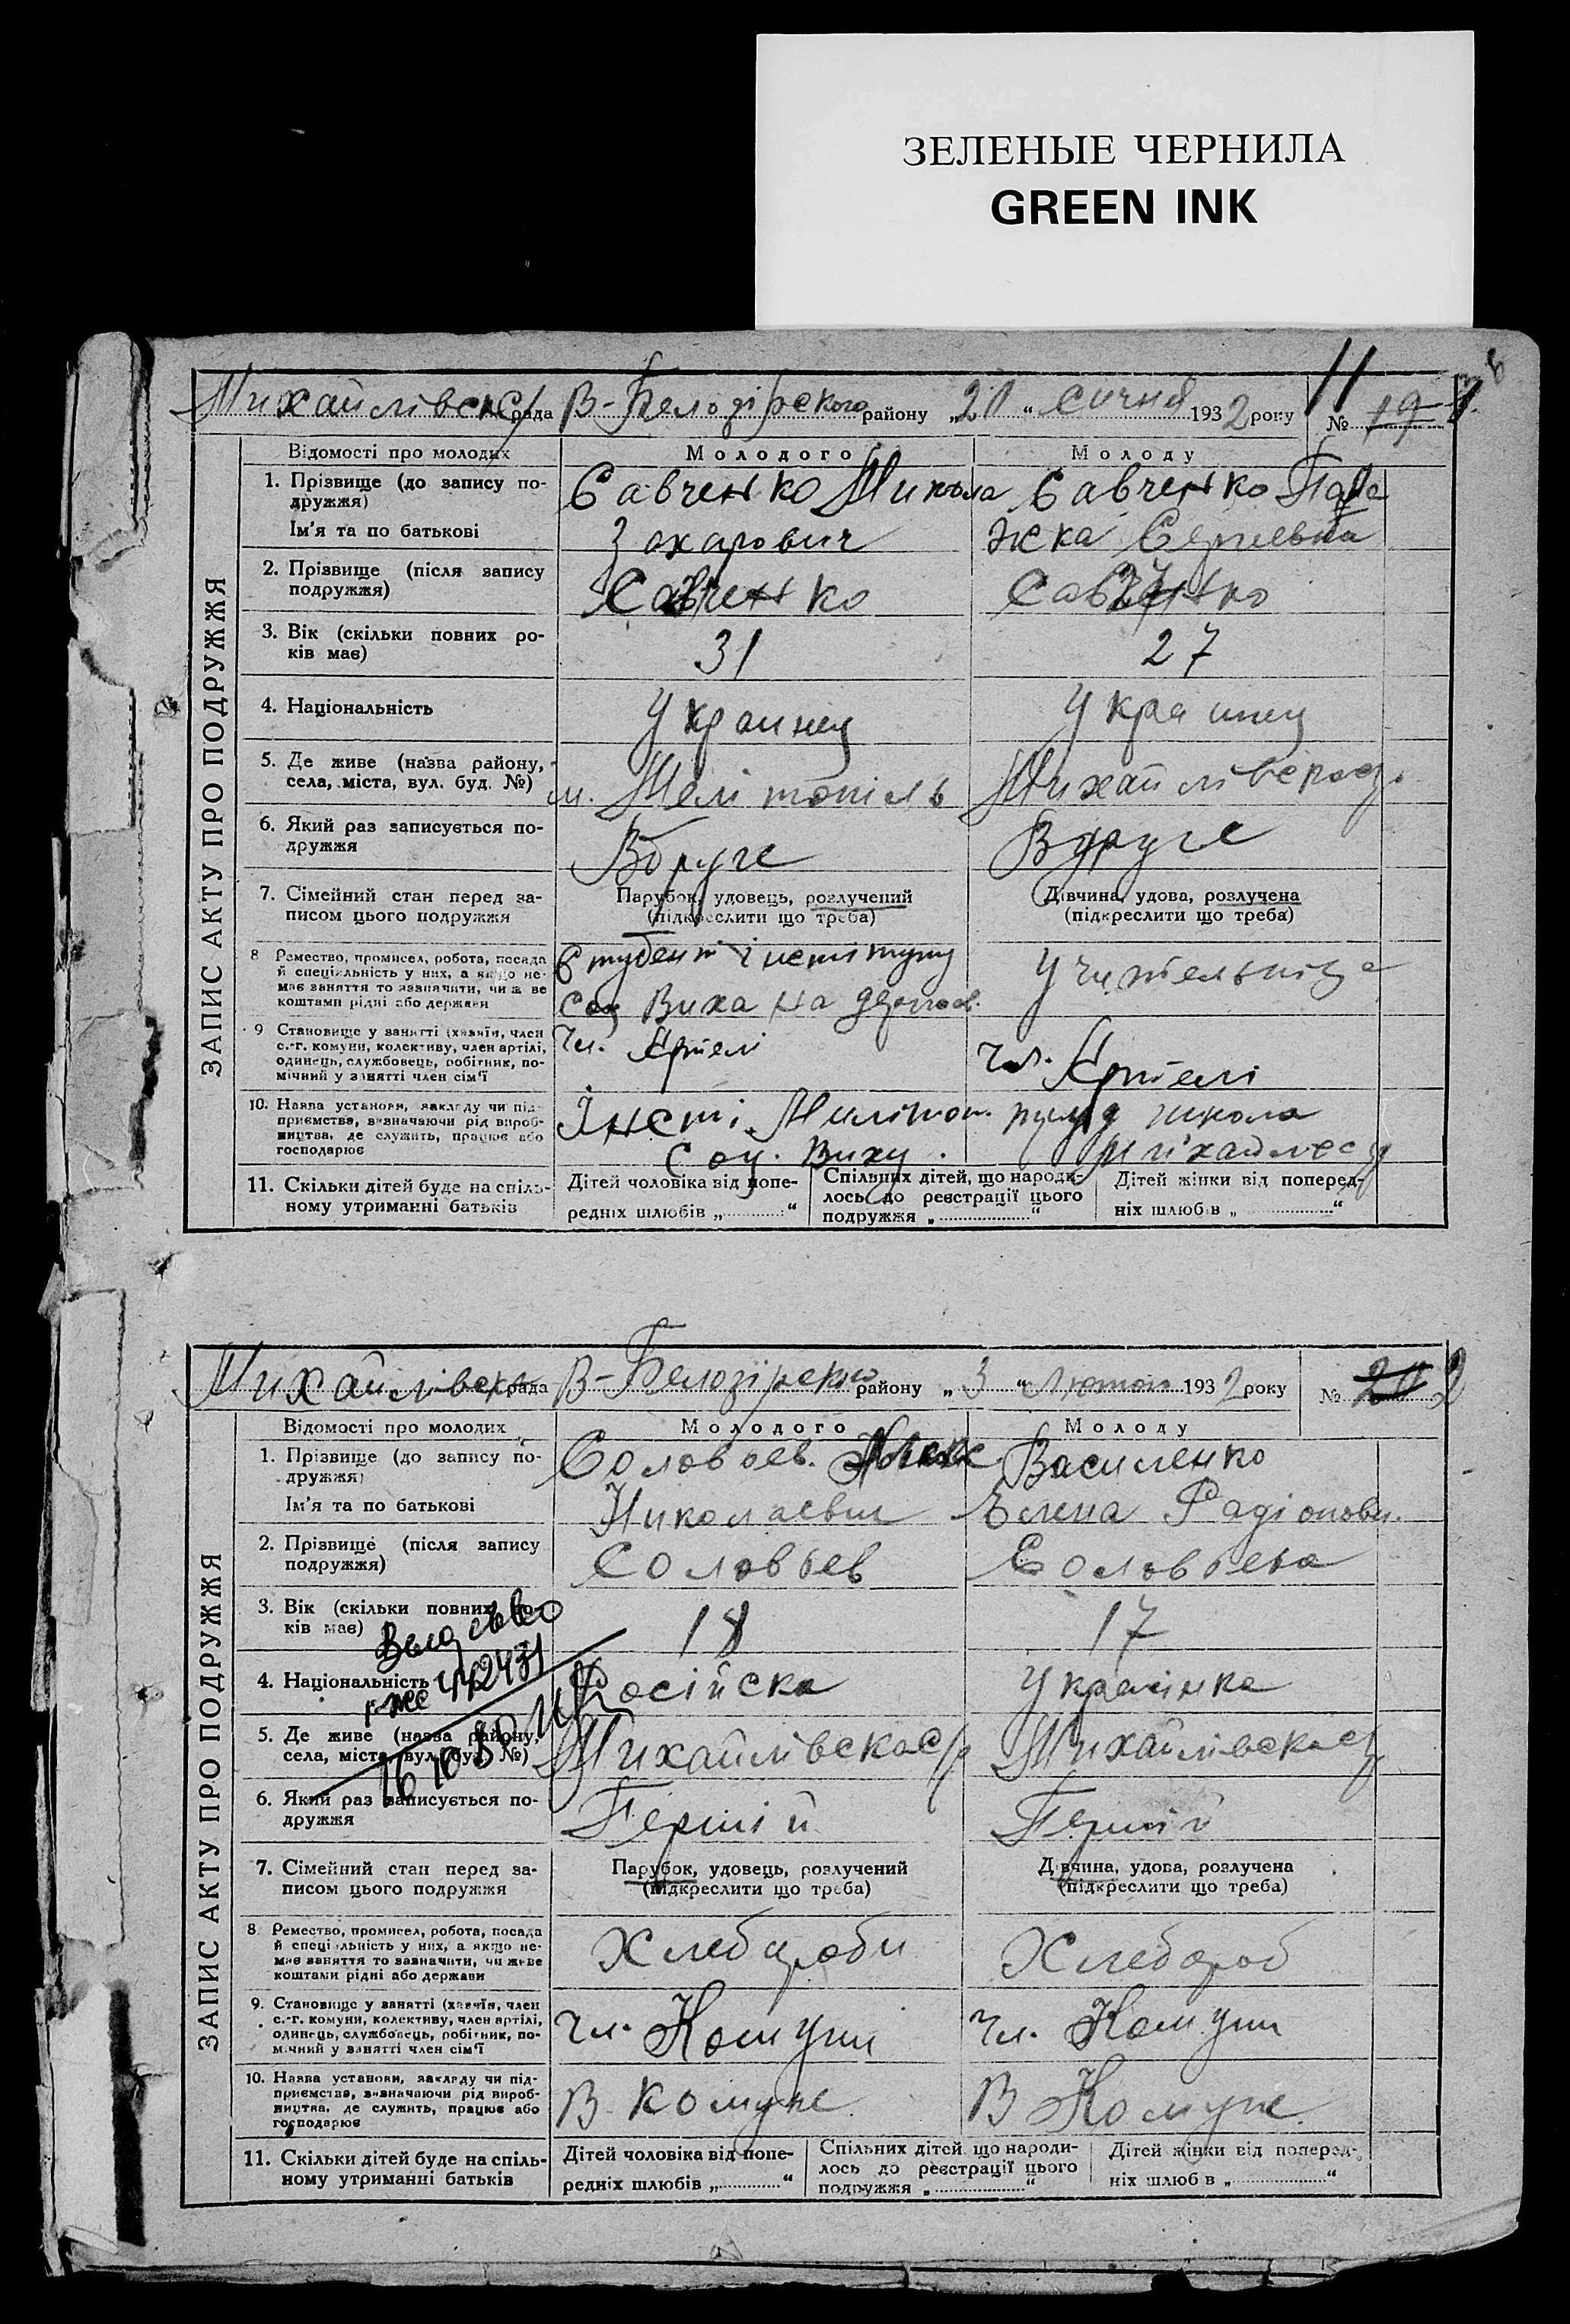 ЗЕЛЕНЫЕ ЧЕРНИЛА
GREEN INK
11
Михайлівск с/рада В-Белозірского району „20“ січня 1932 року № 19 1
Відомості про молодих Молодого Молоду
1. Прізвище (до запису подружжя) Савченко Микола Савченко Пара
Ім'я та по батькові Захарович жка Сергіевна
2. Прізвище (після запису подружжя) Савченко Савченко
3. Вік (скільки повних років має) 31 27
4. Національність Украинец Украинец
5. Де живе (назва району, села, міста, вул. буд. №) м. Мелітопіль
6. Який раз записується подружжя Вдруге Вдруге
7. Сімейний стан перед записом цього подружжя Парубок, удовець, розлучений Дівчина, удова, розлучена
(підкреслити що треба) (підкреслити що треба)
8 Ремество, промисел, робота, посада й спеціяльність у них, а якщо немає заняття то зазначити, чи живе коштами рідні або держави Студент інституту Учительніца
Соц Виха на
9 Становище у занятті (хазяїн, член с.-г. комуни, колективу, член артілі, одинець, службовець, робітник, помічний у занятті член сім'ї Чл. Артелі Чл. Артелі
10. Назва установи, закладу чи підприємства, визначаючи рід виробництва, де служить, працює або господарює Інсти. школа
Соц. Виху.
11. Скільки дітей буде на спільному утриманні батьків Дітей чоловіка від попередніх шлюбів „ “ Спільних дітей, що народилось до реєстрації цього подружжя „ “ Дітей жінки від попередніх шлюбів „ “
ЗАПИС АКТУ ПРО ПОДРУЖЖЯ
Михайлівск рада В-Белозірского району „3“ Лютого 1932 року № 20 2
Відомості про молодих Молодого Молоду
1. Прізвище (до запису подружжя) Соловьев. Василенко
Ім'я та по батькові Николаевич Елена Радіоновн.
2. Прізвище (після запису подружжя) Соловьев Соловьева
3. Вік (скільки повних років має) 18 17
4. Національність Російска Украінка
5. Де живе (назва району, села, міста, вул. буд. №) Михайлівская с/р Михайлівская с/р
6. Який раз записується подружжя Перший Перший
7. Сімейний стан перед записом цього подружжя Парубок, удовець, розлучений Дівчина, удова, розлучена
(підкреслити що треба) (підкреслити що треба)
8. Ремество, промисел, робота, посада й спеціяльність у них, а якщо немає заняття то зазначити, чи живе коштами рідні або держави Хлебороб
9. Становище у занятті (хазяїн, член с.-г. комуни, колективу, член артілі, одинець, службовець, робітник, помічний у занятті член сім'ї Чл. Комуни Чл. Комуни
10. Назва установи, закладу чи підприємства, визначаючи рід виробництва, де служить, працює або господарює В Комуне В Комуне
11. Скільки дітей буде на спільному утриманні батьків Дітей чоловіка від попередніх шлюбів „ “ Спільних дітей що народилось до реєстрації цього подружжя „ “ Дітей жінки від попередніх шлюбів „ “
ЗАПИС АКТУ ПРО ПОДРУЖЖЯ